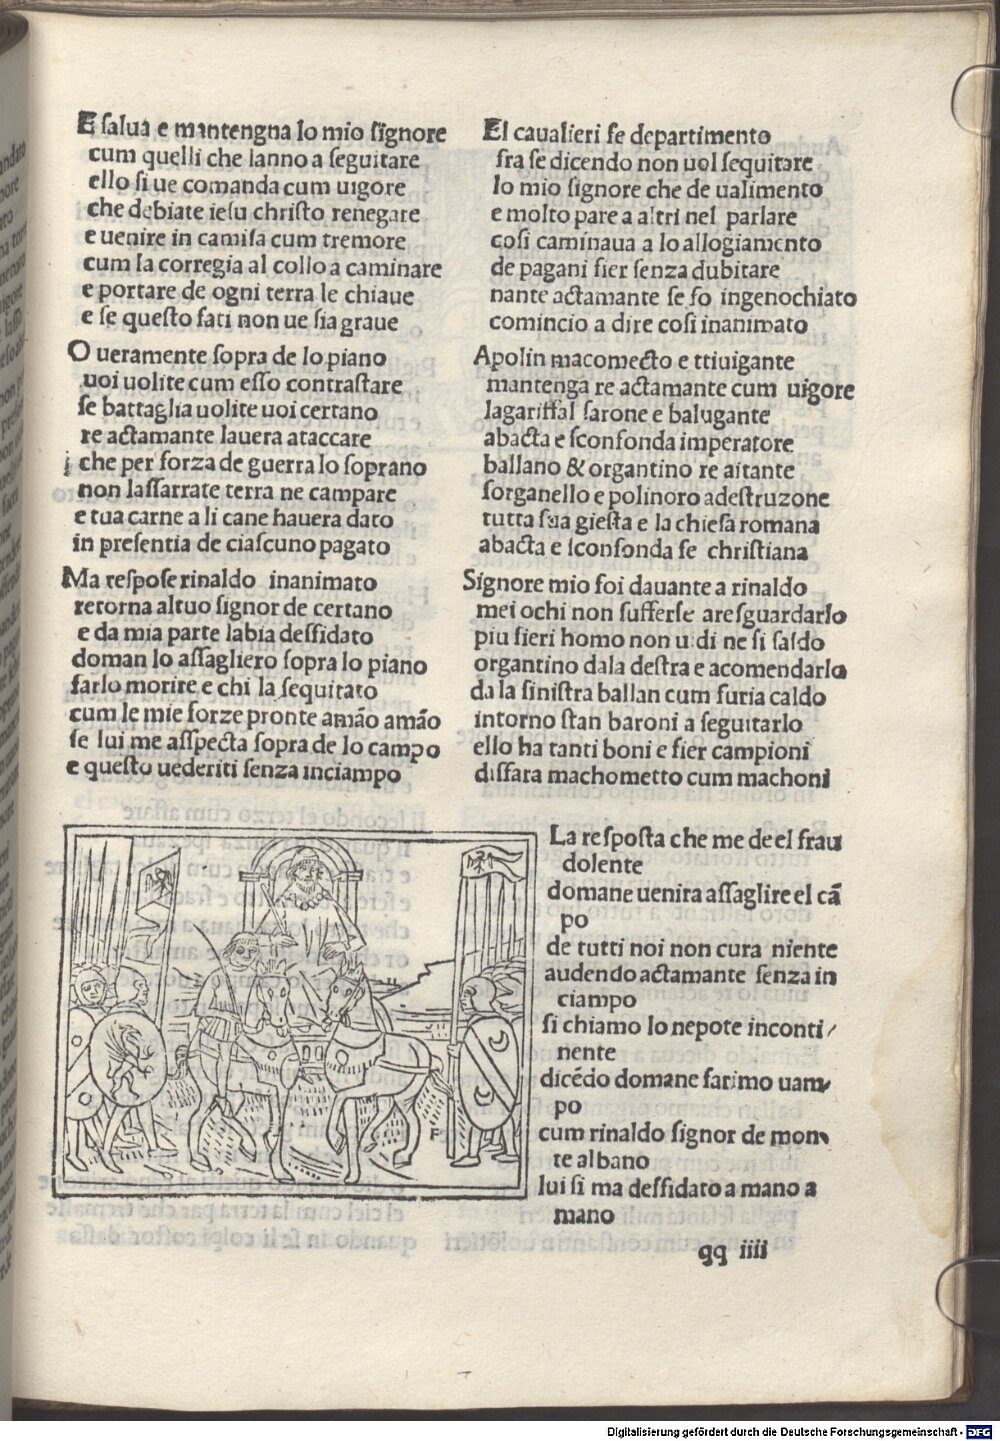 E salua e mantengna lo mio signore
cum quelli che lanno a seguitare
ello si ue comanda cum uigore
che debiate iesu christo renegare
e uenire in camisa cum tremore
cum la corregia al collo a caminare
e portare de ogni terra le chiaue
e se questo fati non ue sia graue
O ueramente sopra de lo piano
uoi uolite cum esso contrastare
se battaglia uolite uoi certano
re actamante lauera ataccare
che per forza de guerra lo soprano
non lassarrate terra ne campare
e tua carne a li cane hauera dato
in presentia de ciascuno pagato
Ma respose rinaldo inanimato
retorna al tuo signor de certano
e da mia parte labia desfidato
doman lo assagliero sopra lo piano
farlo morire e chi la sequitato
cum le mie forze pronte amão amão
se lui me asspecta sopra de lo campo
e questo uederiti senza inciampo
El caualieri fe departimento
fra se dicendo non uol sequitare
lo mio signore che de ualimento
e molto pare a altri nel parlare
cosi caminaua a lo allogiamento
de pagani fier senza dubitare
nante actamante se fo ingenochiato
comincio a dire cosi inanimato
Apolin macomecto e ttiuigante
mantenga re actamante cum uigore
lagariffal sarone e balugante
abacta e sconfonda imperatore
ballano & organtino re aitante
sorganello e polinoro adestruzone
tutta sua giesta e la chiesa romana
abacta e sconfonda fe christiana
Signore mio foi dauante a rinaldo
mei ochi non sufferse aresguardarlo
piu fieri homo non uidi ne si saldo
organtino dala destra e acomendarlo
da la sinistra ballan cum furia caldo
intorno stan baroni a seguitarlo
ello ha tanti boni e fier campioni
disfara machometto cum machoni
La resposta che me de el frau
dolente
domane uenira assaglire el cã
po
de tutti noi non cura niente
audendo actamante senza in
ciampo
si chiamo lo nepote inconti/
nente
dicẽdo domane farimo uam
po
cum rinaldo signor de mon
te albano
lui si ma desfidato a mano a
mano
F
qq iiii
Digitalisierung gefördert durch die Deutsche Forschungsgemeinschaft - DFG